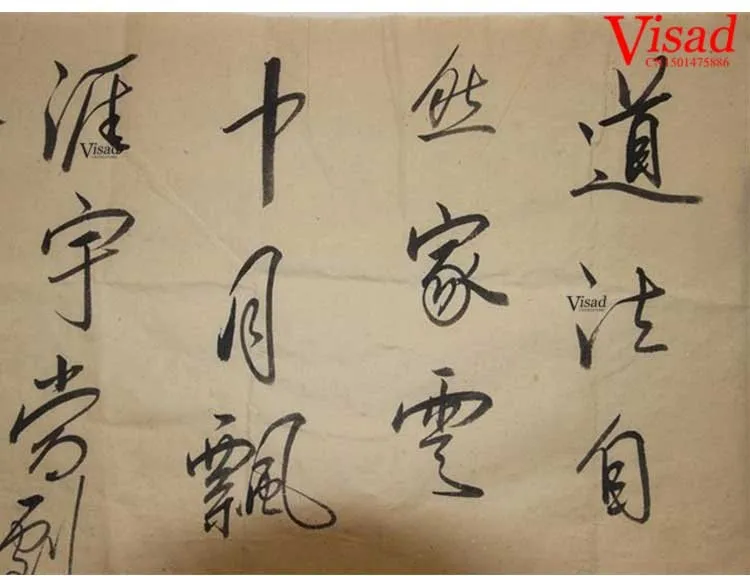 Visad
CN1501475886
道法自
然家雲
巾月飄
涯宇
Visad
Visad